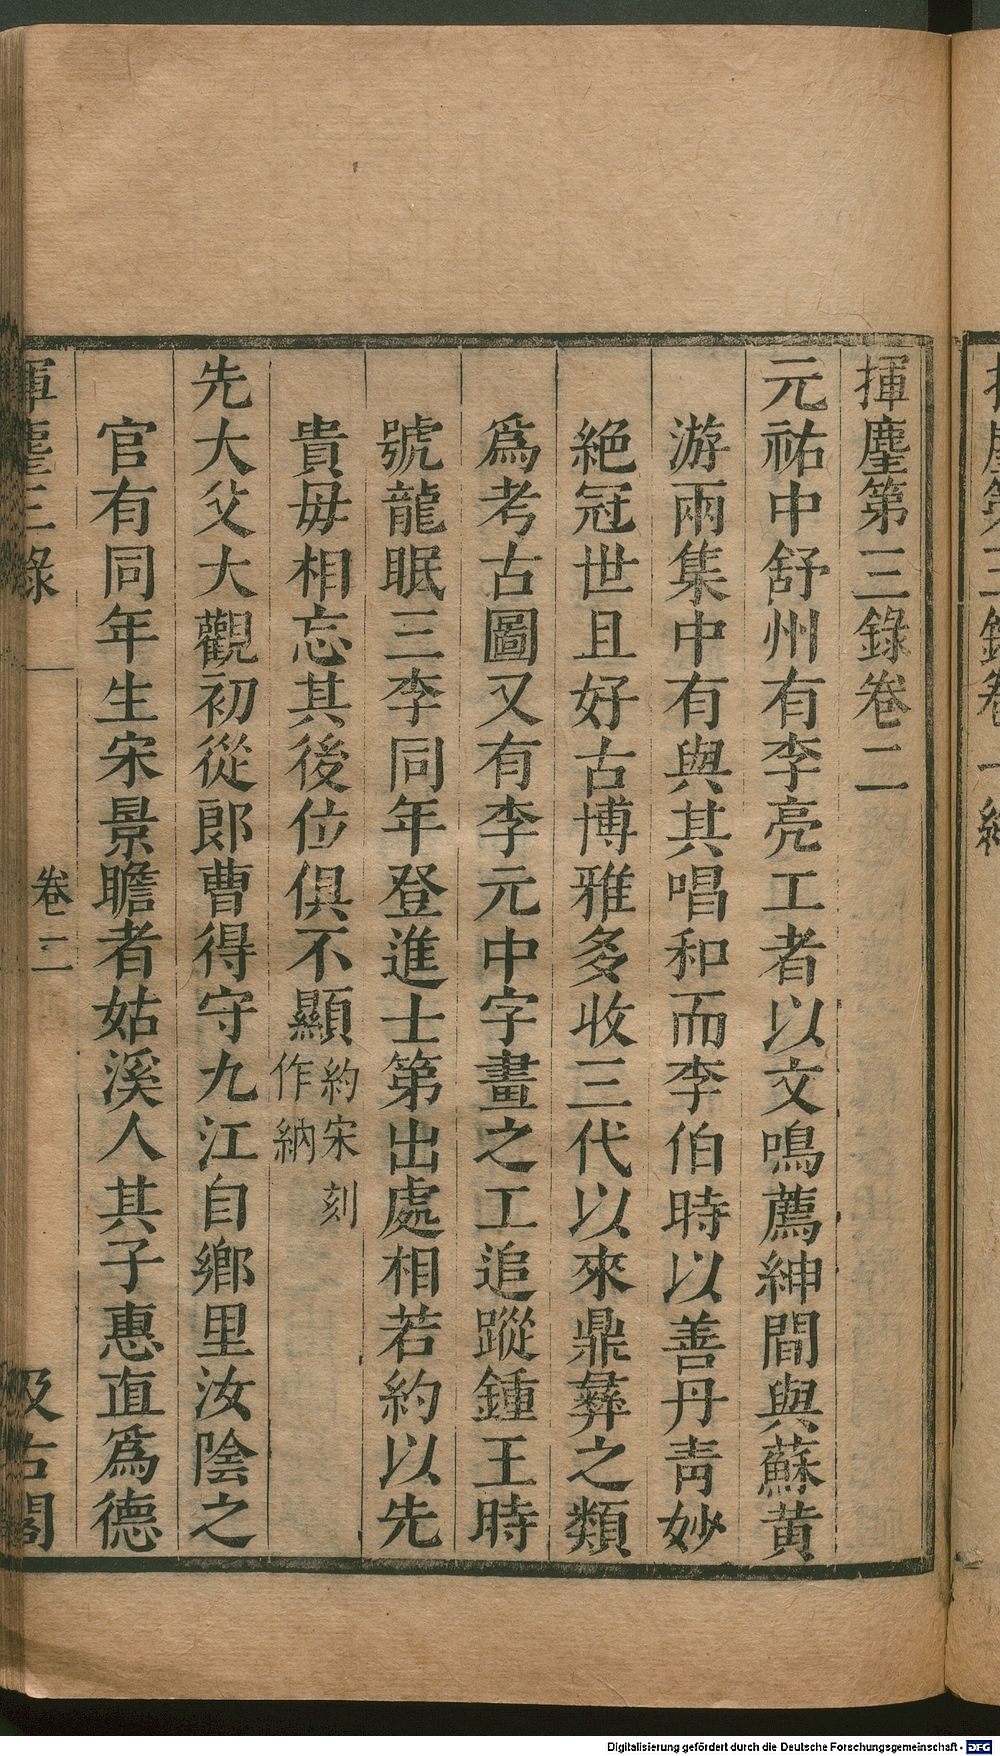 揮麈第三錄卷二
元祐中舒州有李亮工者以文鳴薦紳間與蘇黄
游兩集中有與其唱和而李伯時以善丹青妙
絶冠世且好古博雅多收三代以來鼎彝之類
爲考古圖又有李元中字畫之工追蹤鍾王時
號龍眠三李同年登進士第出處相若約以先
貴毋相忘其後位俱不顯約宋刻作納
先大父大觀初從郎曹得守九江自鄉里汝陰之
官有同年生宋景瞻者姑溪人其子惠直爲德
揮麈三錄 卷二 汲古閣
Digitalisierung gefördert durch die Deutsche Forschungsgemeinschaft - DFG